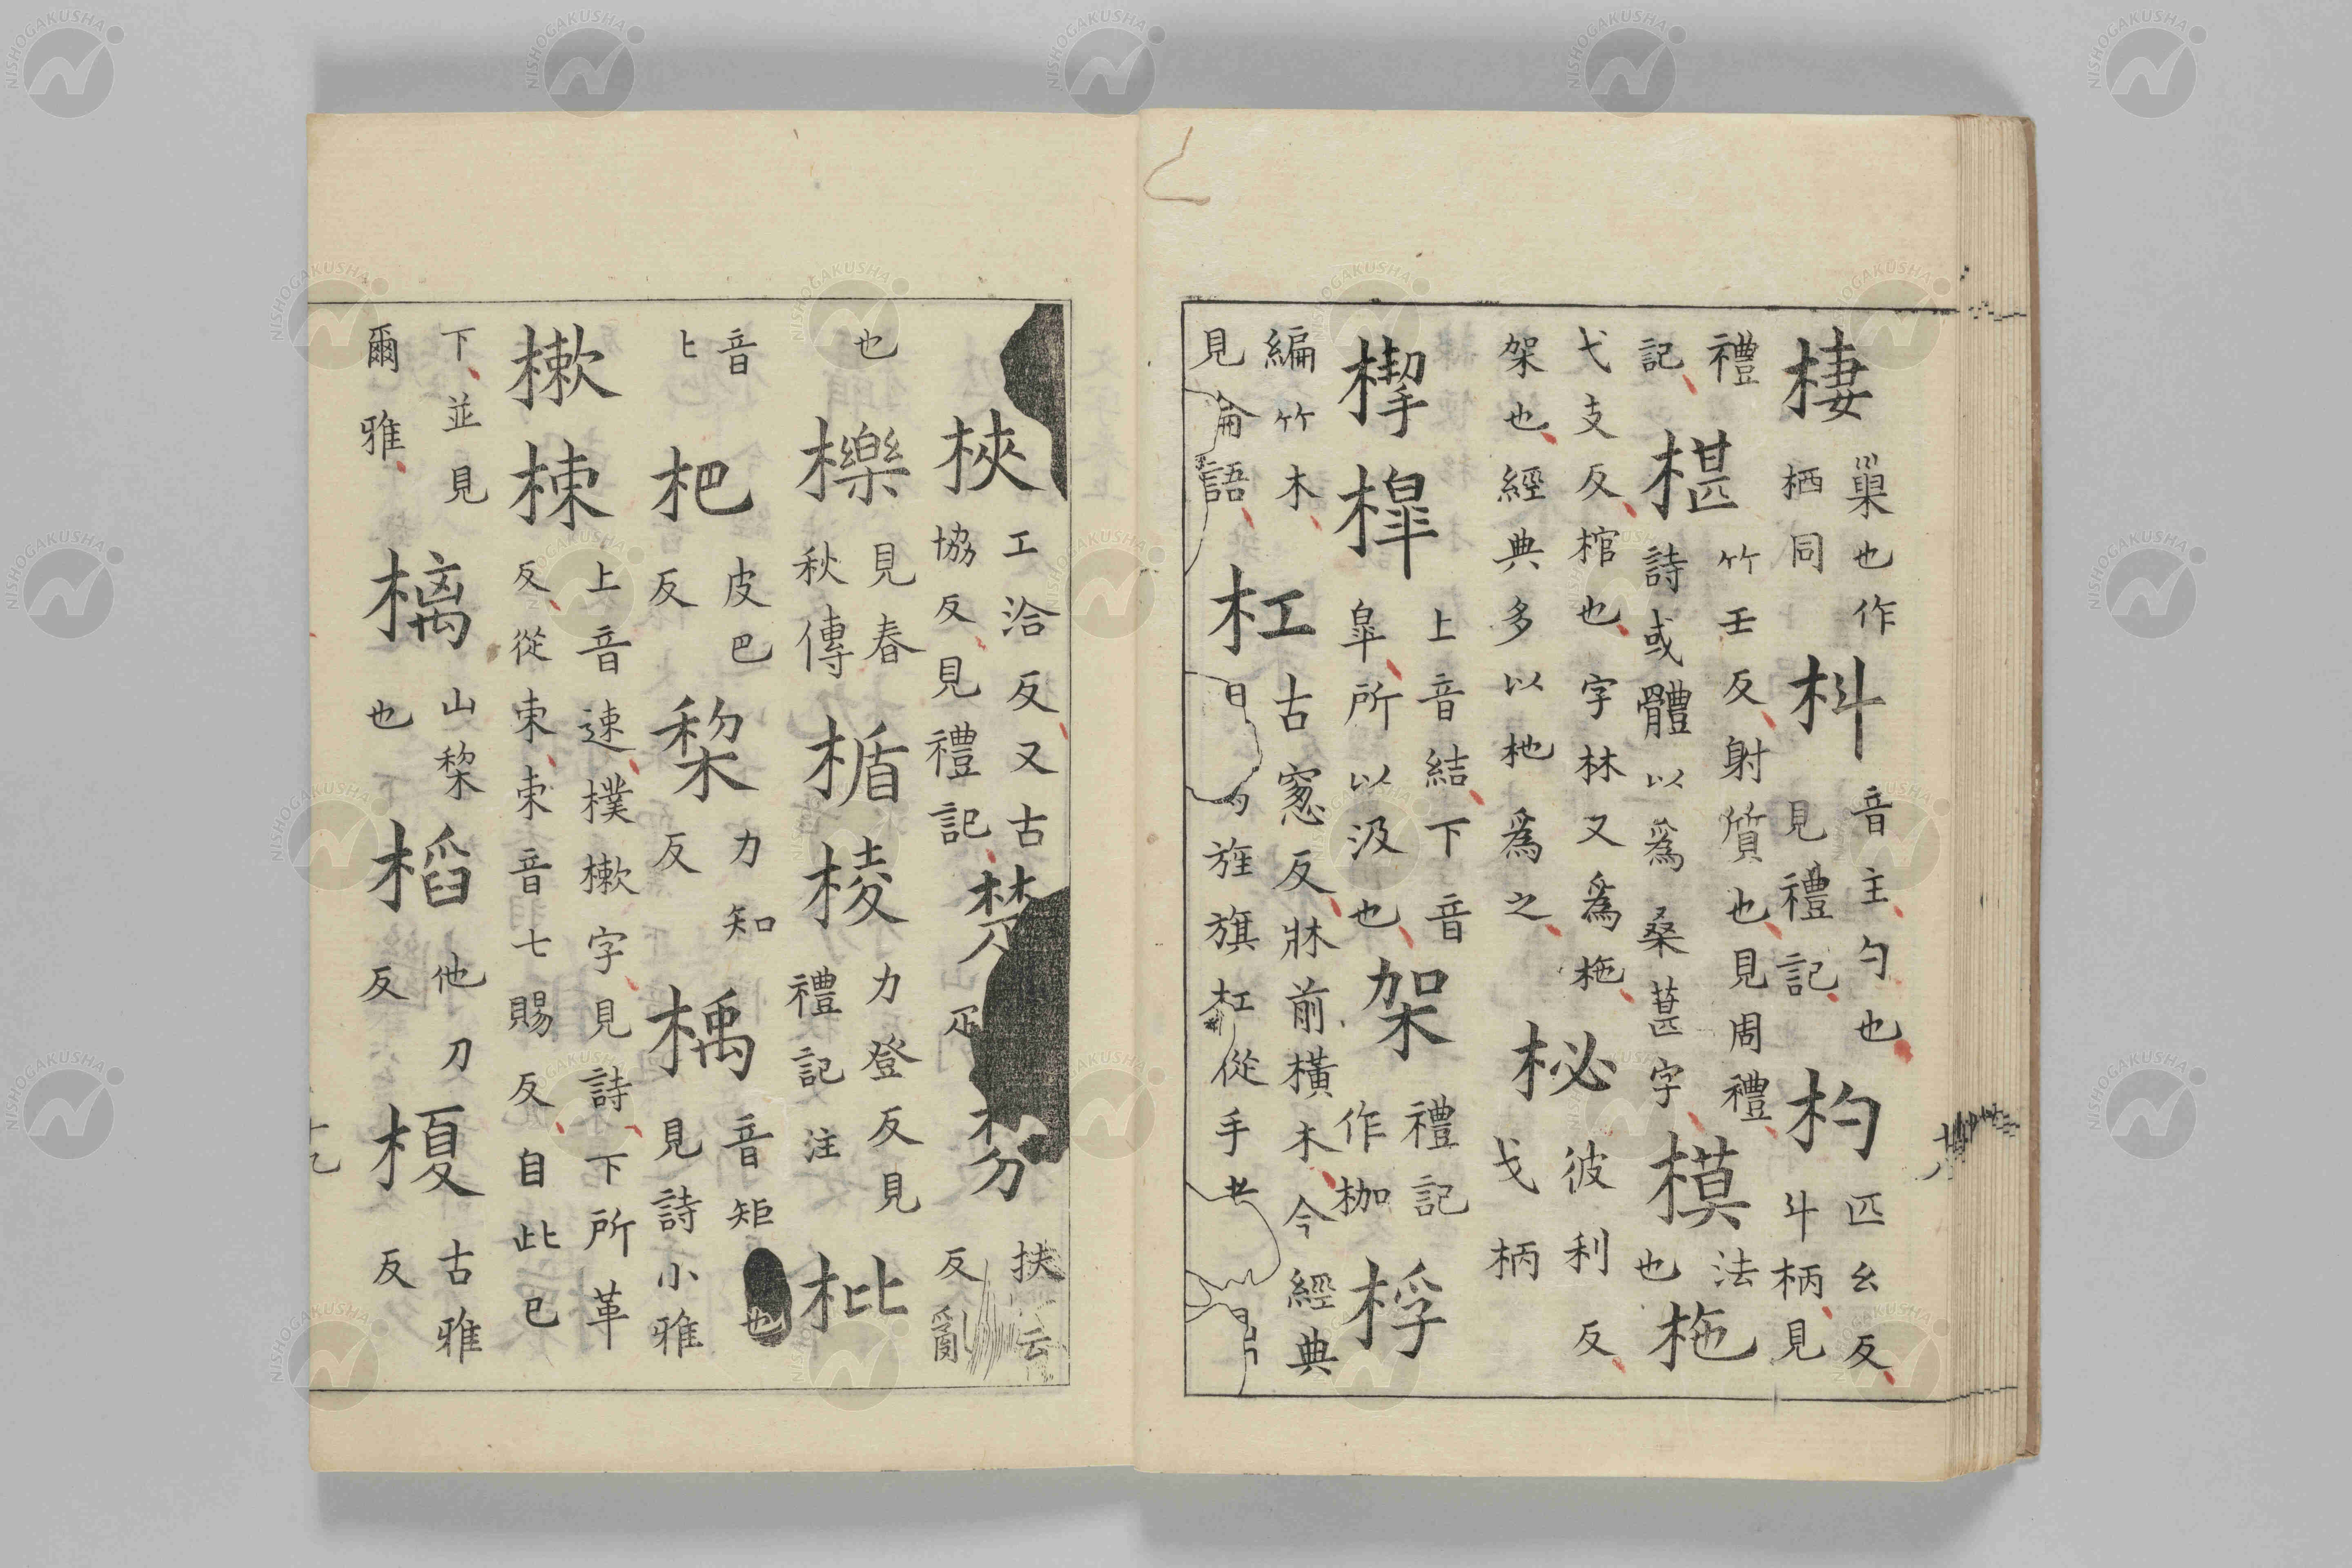 棲 巢也作栖同 枓 音主勺也見禮記 杓 匹幺反斗柄見
禮記 椹 竹壬反射質也見周禮詩或體以為桑葚字 模 法也 柂
弋支反棺也字林又為柂架也經典多以杝為之 柲 彼利反戈柄
楔 槹 上音結下音皐所以汲也 架 禮記作枷 桴
編竹木見論語 杠 古窻反牀前橫木今經典
旌旗杠從手
梜 工洽反又古協反見禮記 扶云反亂
也 櫟 見春秋傳 楯 棱 力登反見禮記注 枇
音匕 杷 皮巴反 棃 力知反 楀 音矩見詩小雅
樕 梀 上音速樸樕字見詩下所革反從朿朿音七賜反自此已
下並見爾雅 樆 山棃也 槄 他刀反 榎 古雅反
NISHOGAKUSHA